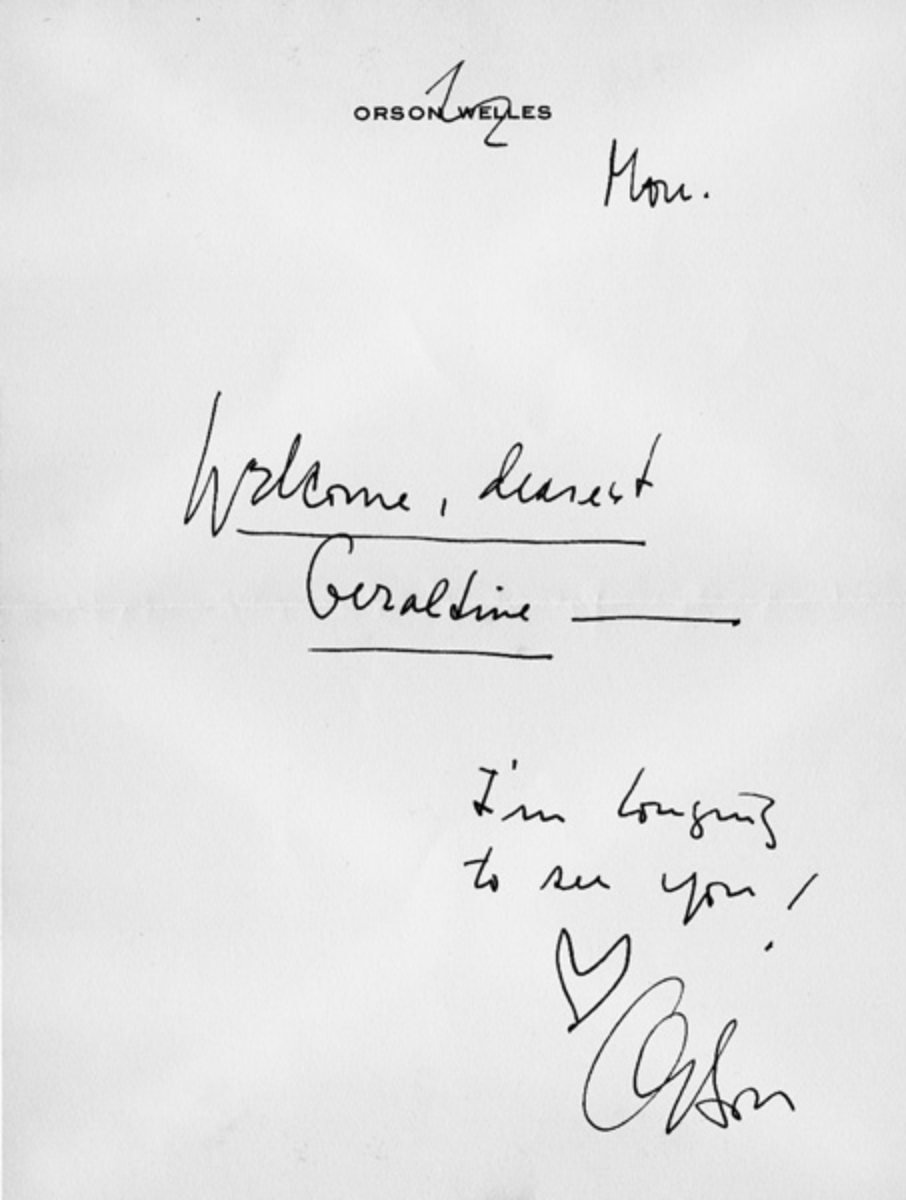 ORSON WELLES
Mon.
Welcome, dearest
Geraldine —
I'm longing
to see you!
Orson